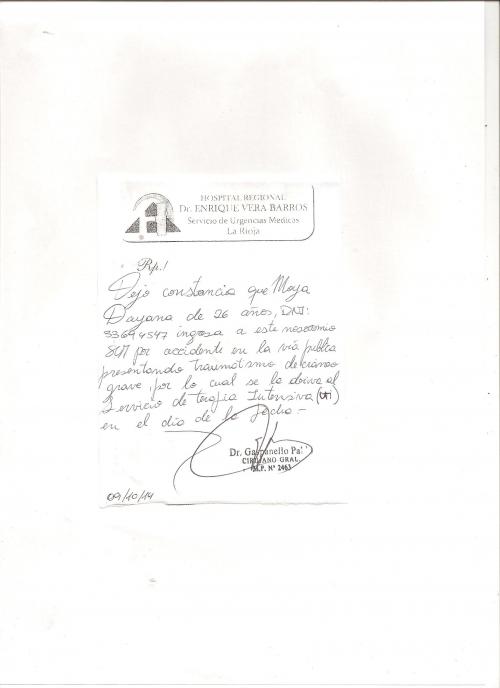 HOSPITAL REGIONAL
Dr. ENRIQUE VERA BARROS
Servicio de Urgencias Medicas
La Rioja
Rp./
Dejo constancia que Maya
Dayana de 26 años, DNI:
33694547 ingresa a este nosocomio
por accidente en la vía publica
presentando traumatismo de craneo
grave, por lo cual se la deriva al
Servicio de terapia Intensiva (UTI)
en el día de la fecha.-
Dr.
CIRUJANO GRAL.
M.P. Nº 2463
09/10/14